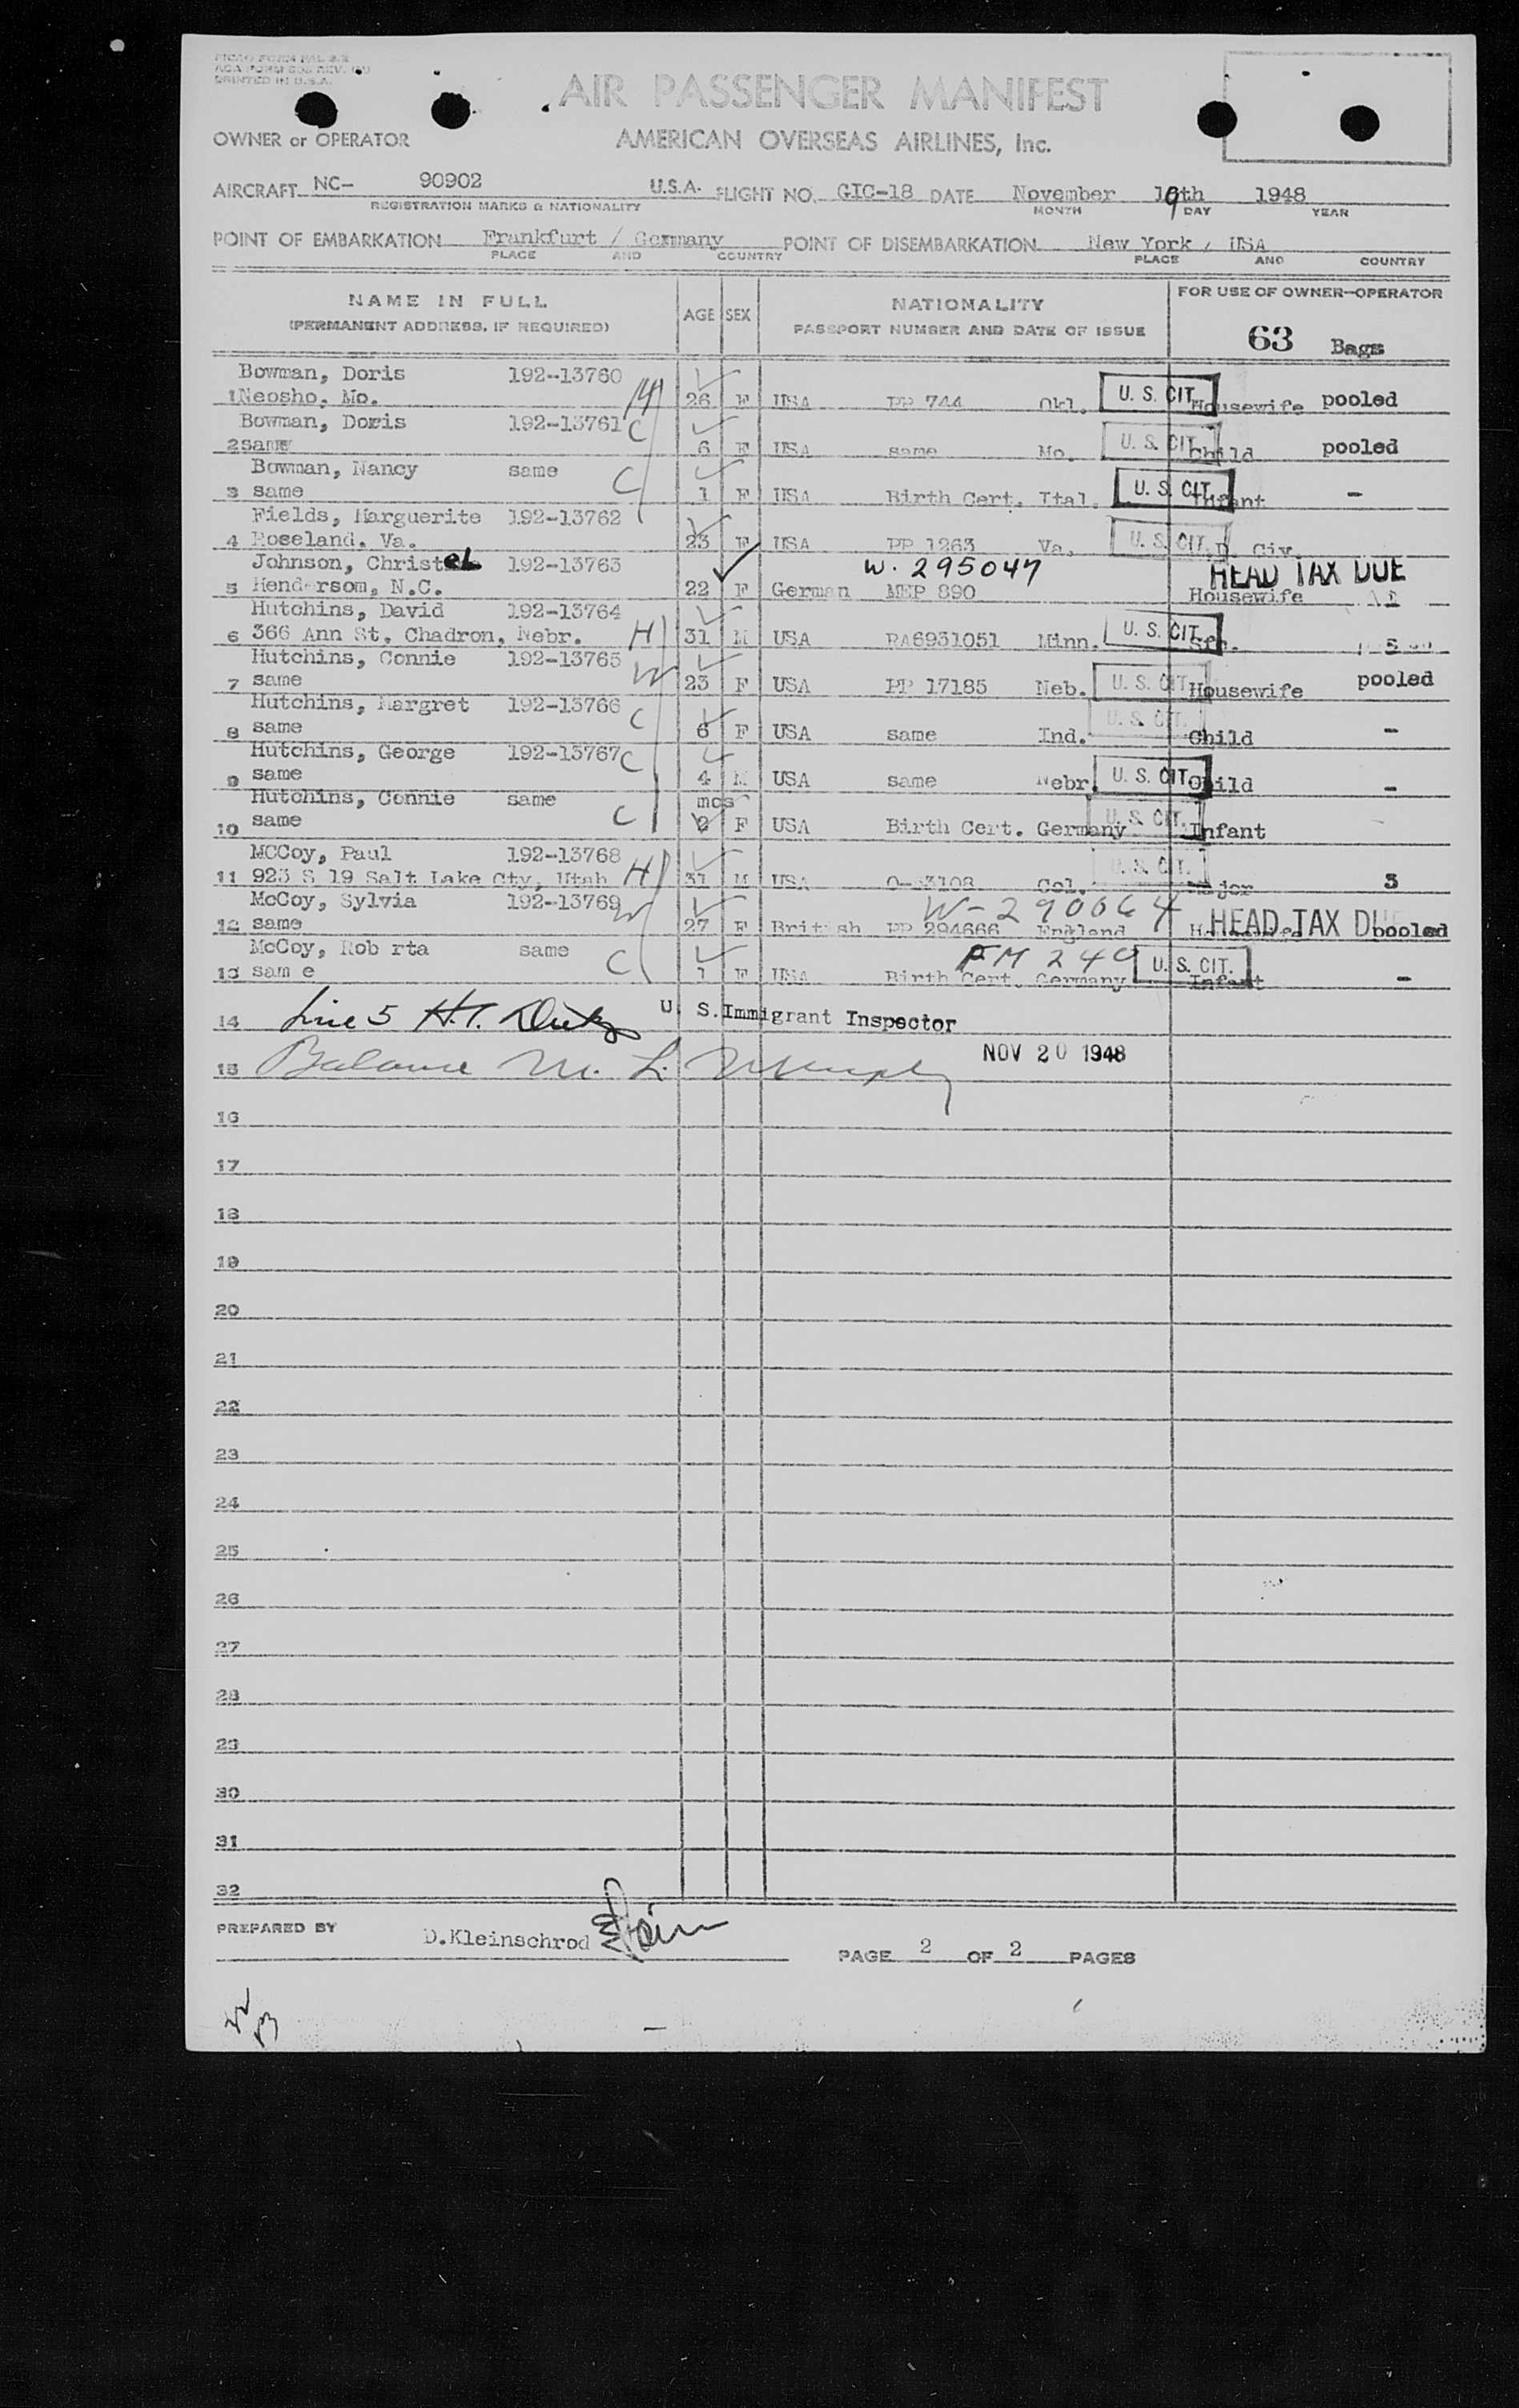 PRINTED IN U.S.A.
AIR PASSENGER MANIFEST
OWNER or OPERATOR AMERICAN OVERSEAS AIRLINES, Inc.
AIRCRAFT NC- 90902 U.S.A. FLIGHT NO. GIC-18 DATE November 19th 1948
REGISTRATION MARKS & NATIONALITY MONTH DAY YEAR
POINT OF EMBARKATION Frankfurt / Germany POINT OF DISEMBARKATION New York / USA
PLACE AND COUNTRY PLACE AND COUNTRY
NAME IN FULL AGE SEX NATIONALITY FOR USE OF OWNER-OPERATOR
(PERMANENT ADDRESS, IF REQUIRED) PASSPORT NUMBER AND DATE OF ISSUE 63 Bags
Bowman, Doris 192-13760
1 Neosho, Mo. 26 F USA PP 744 Okl. U. S. CIT. Housewife pooled
Bowman, Doris 192-13761 C
2 same 6 F USA same Mo. U. S. CIT. Child pooled
Bowman, Nancy same C
3 same 1 F USA Birth Cert. Ital. U. S. CIT. Infant -
Fields, Marguerite 192-13762
4 Roseland, Va. 23 F USA PP 1263 Va. U. S. CIT. Civ.
Johnson, Christel 192-13763 W. 295047 HEAD TAX DUE
5 Hendersom, N.C. 22 F German MEP 890 Housewife
Hutchins, David 192-13764
6 366 Ann St, Chadron, Nebr. H 31 M USA RA6931051 Minn. U. S. CIT. 5
Hutchins, Connie 192-13765
7 same W 23 F USA PP 17185 Neb. U. S. CIT. Housewife pooled
Hutchins, Margret 192-13766 C
8 same 6 F USA same Ind. U. S. CIT. Child -
Hutchins, George 192-13767 C
9 same 4 M USA same Nebr. U. S. CIT. Child -
Hutchins, Connie same C mos
10 same 2 F USA Birth Cert. Germany U. S. CIT. Infant
MCCoy, Paul 192-13768
11 923 S 19 Salt Lake Cty, Utah H 31 M USA Col. U. S. CIT. Major 3
McCoy, Sylvia 192-13769 W W-290664
12 same 27 F British PP 294666 England HEAD TAX DUE pooled
McCoy, Rob rta same C FM 240
13 sam e 1 F USA Birth Cert. Germany U. S. CIT. Infant -
14 Line 5 H.T. U. S. Immigrant Inspector
15 Balance M. L. NOV 20 1948
16
17
18
19
20
21
22
23
24
25
26
27
28
29
30
31
32
PREPARED BY D.Kleinschrod PAGE 2 OF 2 PAGES